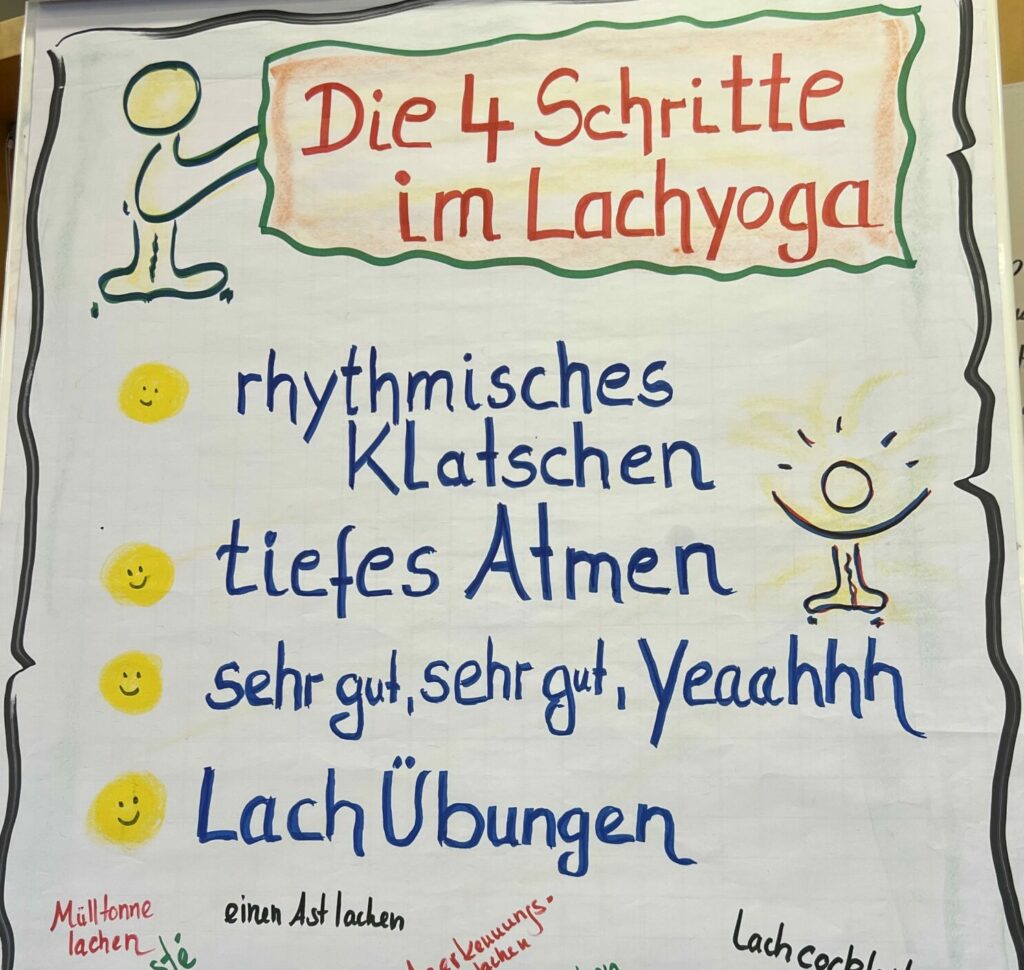 Die 4 Schritte
im Lachyoga
rhythmisches
Klatschen
tiefes Atmen
sehr gut, sehr gut, Yeaahhh
Lach Übungen
Mülltonne
lachen
einen Ast lachen
lachen